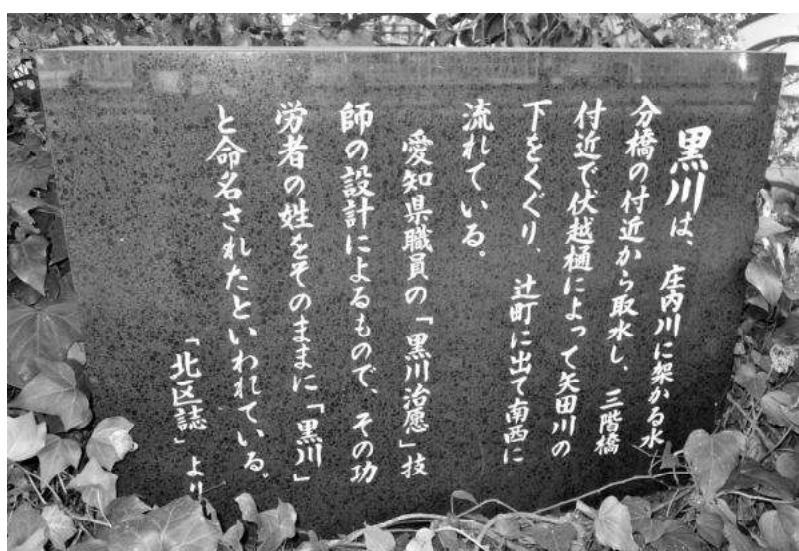 黒川は、庄内川に架かる水
分橋の付近から取水し、三階橋
付近で伏越樋によって矢田川の
下をくぐり、辻町に出て南西に
流れている。
愛知県職員の「黒川治愿」技
師の設計によるもので、その功
労者の姓をそのままに「黒川」
と命名されたといわれている。
「北区誌」より